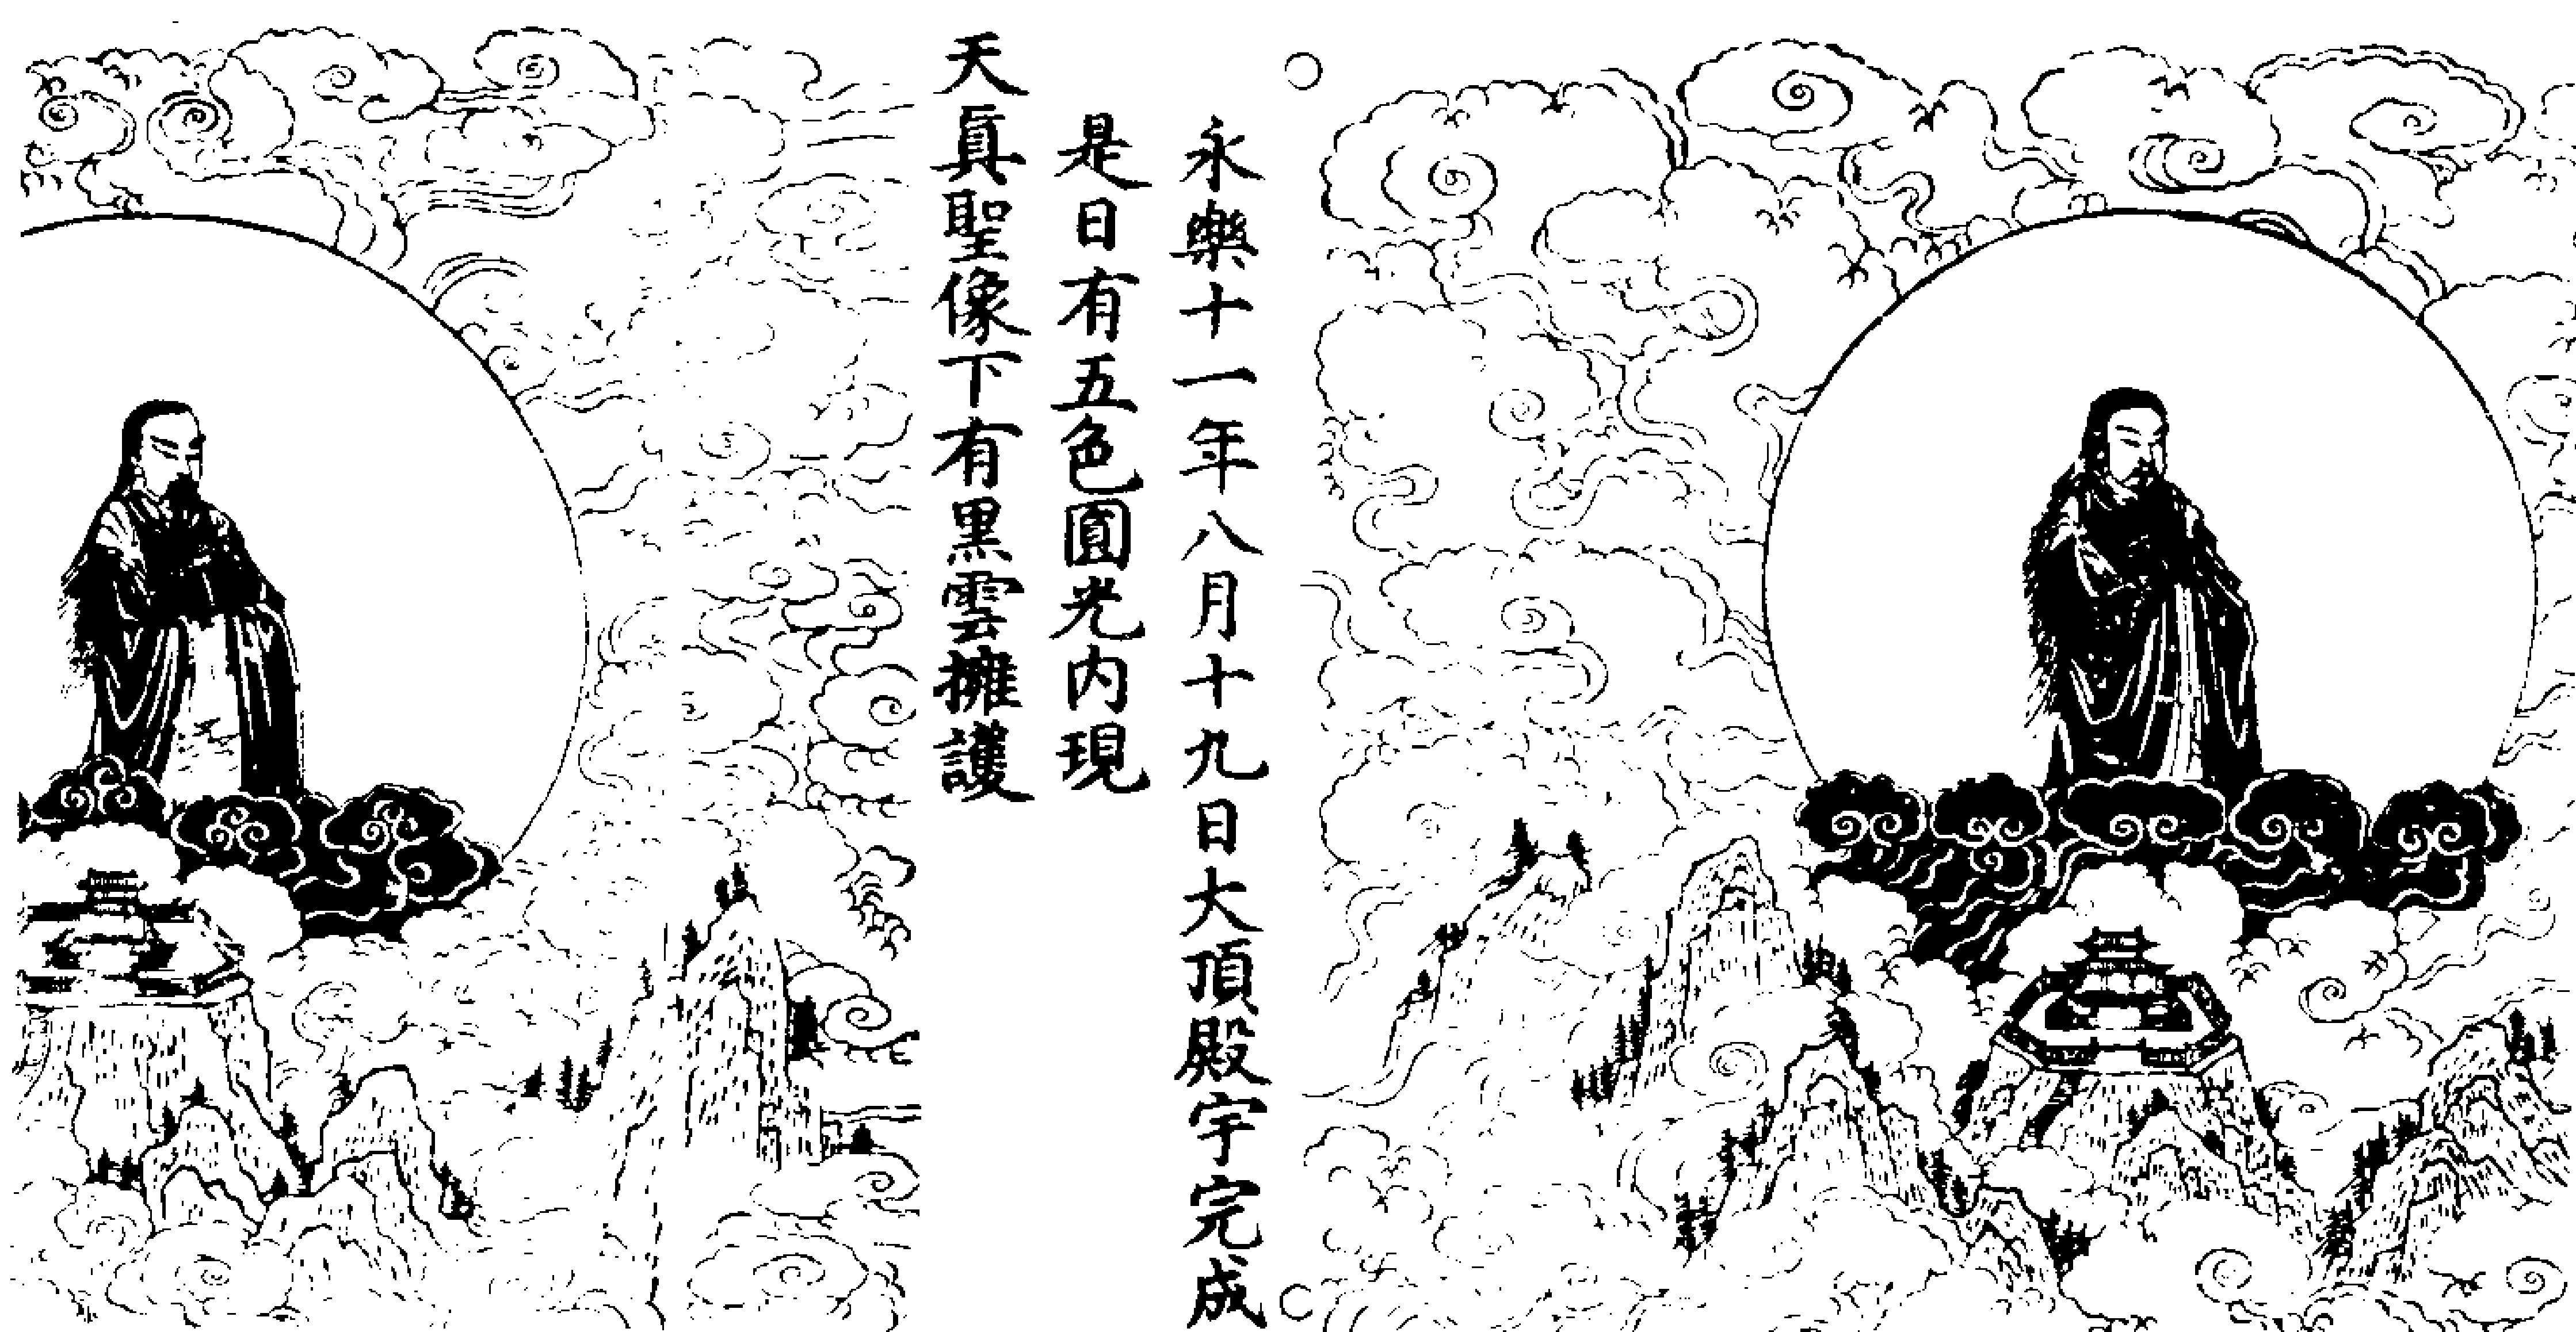 永樂十一年八月十九日大頂殿宇完成
是日有五色圓光内現
天眞聖像下有黑雲擁護